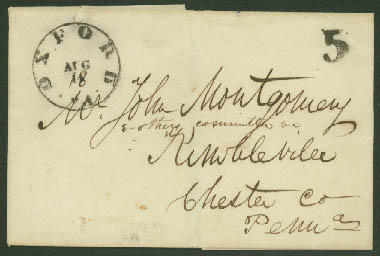 OXFORD
AUG
18
PA
5
Mr. John Montgomery
& others committee &c
Kimbleville
Chester Co
Penna